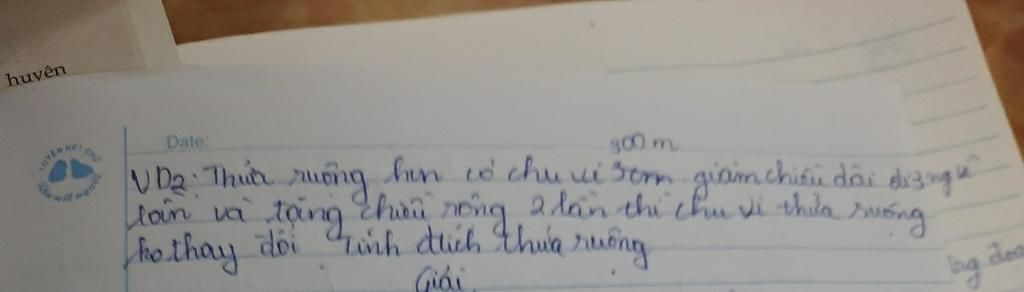 huyên
Date:
300 m
VD2: Thửa ruộng hcn có chu vi giảm chiều dài đi 3
lần và tăng chiều rộng 2 lần thì chu vi thửa ruộng
ko thay đổi Tính dtích thửa ruộng
Giải